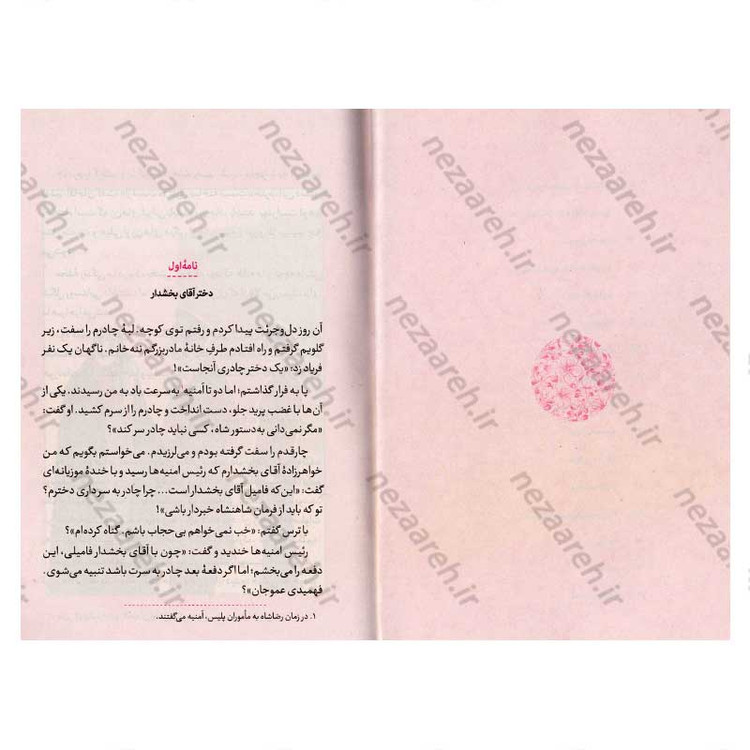 نامهٔ اول
دختر آقای بخشدار
آن روز دل‌وجرئت پیدا کردم و رفتم توی کوچه. لبهٔ چادرم را سفت، زیر
گلویم گرفتم و راه افتادم طرفِ خانهٔ مادربزرگم ننه‌خانم. ناگهان یک نفر
فریاد زد: «یک دختر چادری آنجاست»!
پا به فرار گذاشتم؛ اما دو تا اَمنیه۱ به‌سرعت باد به من رسیدند. یکی از
آن‌ها با غضب پرید جلو، دست انداخت و چادرم را از سرم کشید. او گفت:
«مگر نمی‌دانی به‌دستور شاه، کسی نباید چادر سر کند»؟
چارقدم را سفت گرفته بودم و می‌لرزیدم. می‌خواستم بگویم که من
خواهرزادهٔ آقای بخشدارم که رئیس امنیه‌ها رسید و با خندهٔ موزیانه‌ای
گفت: «این‌که فامیل آقای بخشدار است... چرا چادر به سرداری دخترم؟
تو که باید از فرمان شاهنشاه خبردار باشی»!
با ترس گفتم: «خب نمی‌خواهم بی‌حجاب باشم. گناه کرده‌ام»؟
رئیس امنیه‌ها خندید و گفت: «چون با آقای بخشدار فامیلی، این
دفعه را می‌بخشم؛ اما اگر دفعهٔ بعد چادر به سرت باشد تنبیه می‌شوی.
فهمیدی عموجان»؟
۱. در زمان رضاشاه به مأموران پلیس، اَمنیه می‌گفتند.
nezaareh.ir
nezaareh.ir
nezaareh.ir
nezaareh.ir
nezaareh.ir
nezaareh.ir
nezaareh.ir
nezaareh.ir
nezaareh.ir